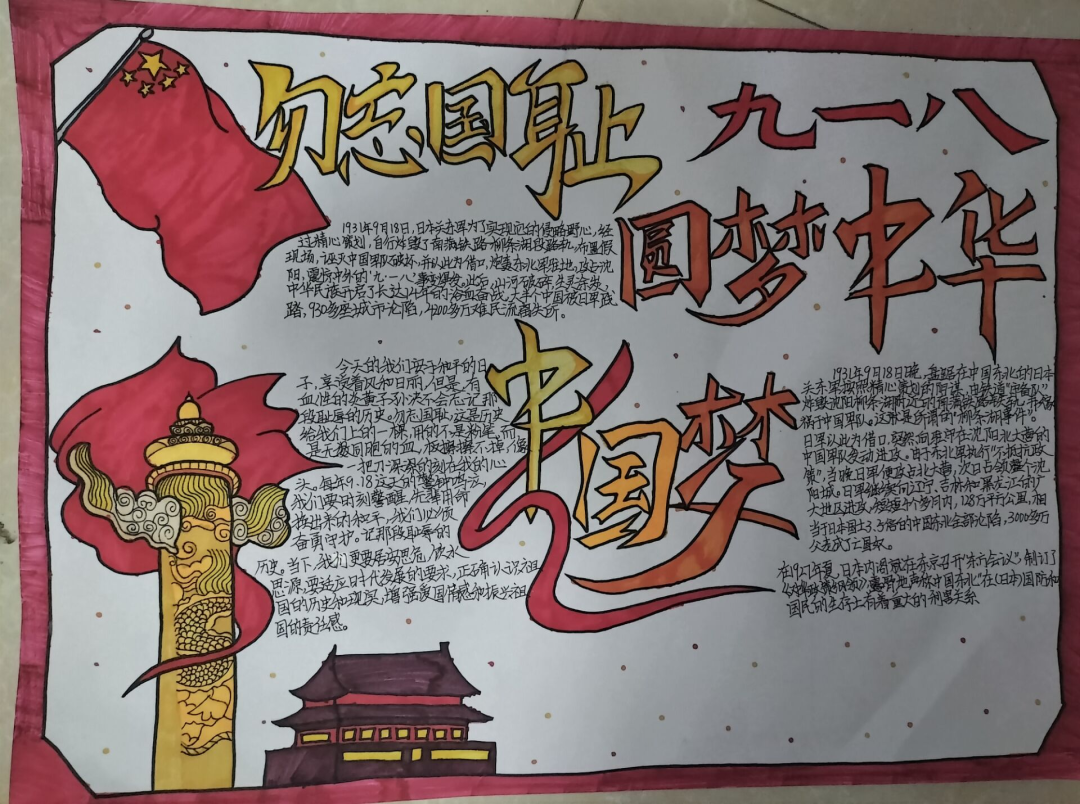 勿忘国耻
九一八
圆梦中华
1931年9月18日，日本关东军为了实现它的侵略野心，经
过精心策划，自行炸毁了南满铁路柳条湖段路轨，布置假
现场，诬灭中国军队破坏，并以此为借口，炮轰东北军驻地，攻占沈
阳，震惊中外的"九·一八"事变爆发。此后，山河破碎，生灵涂炭，
中华民族开启了长达14年的浴血奋战，大半个中国被日军践
踏，930多座城市沦陷，4200多万难民流离失所。
今天的我们安于和平的日
子，享受着风和日丽，但是，有
血性的炎黄子孙决不会忘记那
段耻辱的历史。勿忘国耻，这是历史
给我们上的一课，用的不是粉笔，而
是无数同胞的血，
一把刀深深的刻在我的心
头。每年9.18这天的警钟鸣
我们要时刻警醒，先辈用命
换出来的和平，我们必须
奋勇守护。记那段耻辱的
历史。当下，我们更要居安思危，饮水
思源，要适应时代发展的要求，正确认识祖
国的历史和现实，增强爱国情感和振兴祖
国的责任感。
中国梦
1931年9月18日晚，盘踞在中国东北的日本
关东军按照精心策划的阴谋，由铁道"守备队"
炸毁沈阳柳条湖附近的南满铁路路轨，并嫁
祸于中国军队。这就是所谓的"柳条湖事件"。
日军以此为借口，突然向驻守在沈阳北大营的
中国军队发动进攻。由于东北军执行"不抵抗政
策"，当晚日军便攻占北大营，次日占领整个沈
阳城。日军继续向辽宁、吉林和黑龙江的广
大地区进攻，短短4个多月内，128万平方公里，相
当于日本国土3.5倍的中国东北全部沦陷，3000多万
父老成了亡国奴。
在1927年夏，日本内阁就在东京召开"东方会议"，制订了
公然声称中国东北"在（日本）国防和
国民的生存上有着重大的利害关系